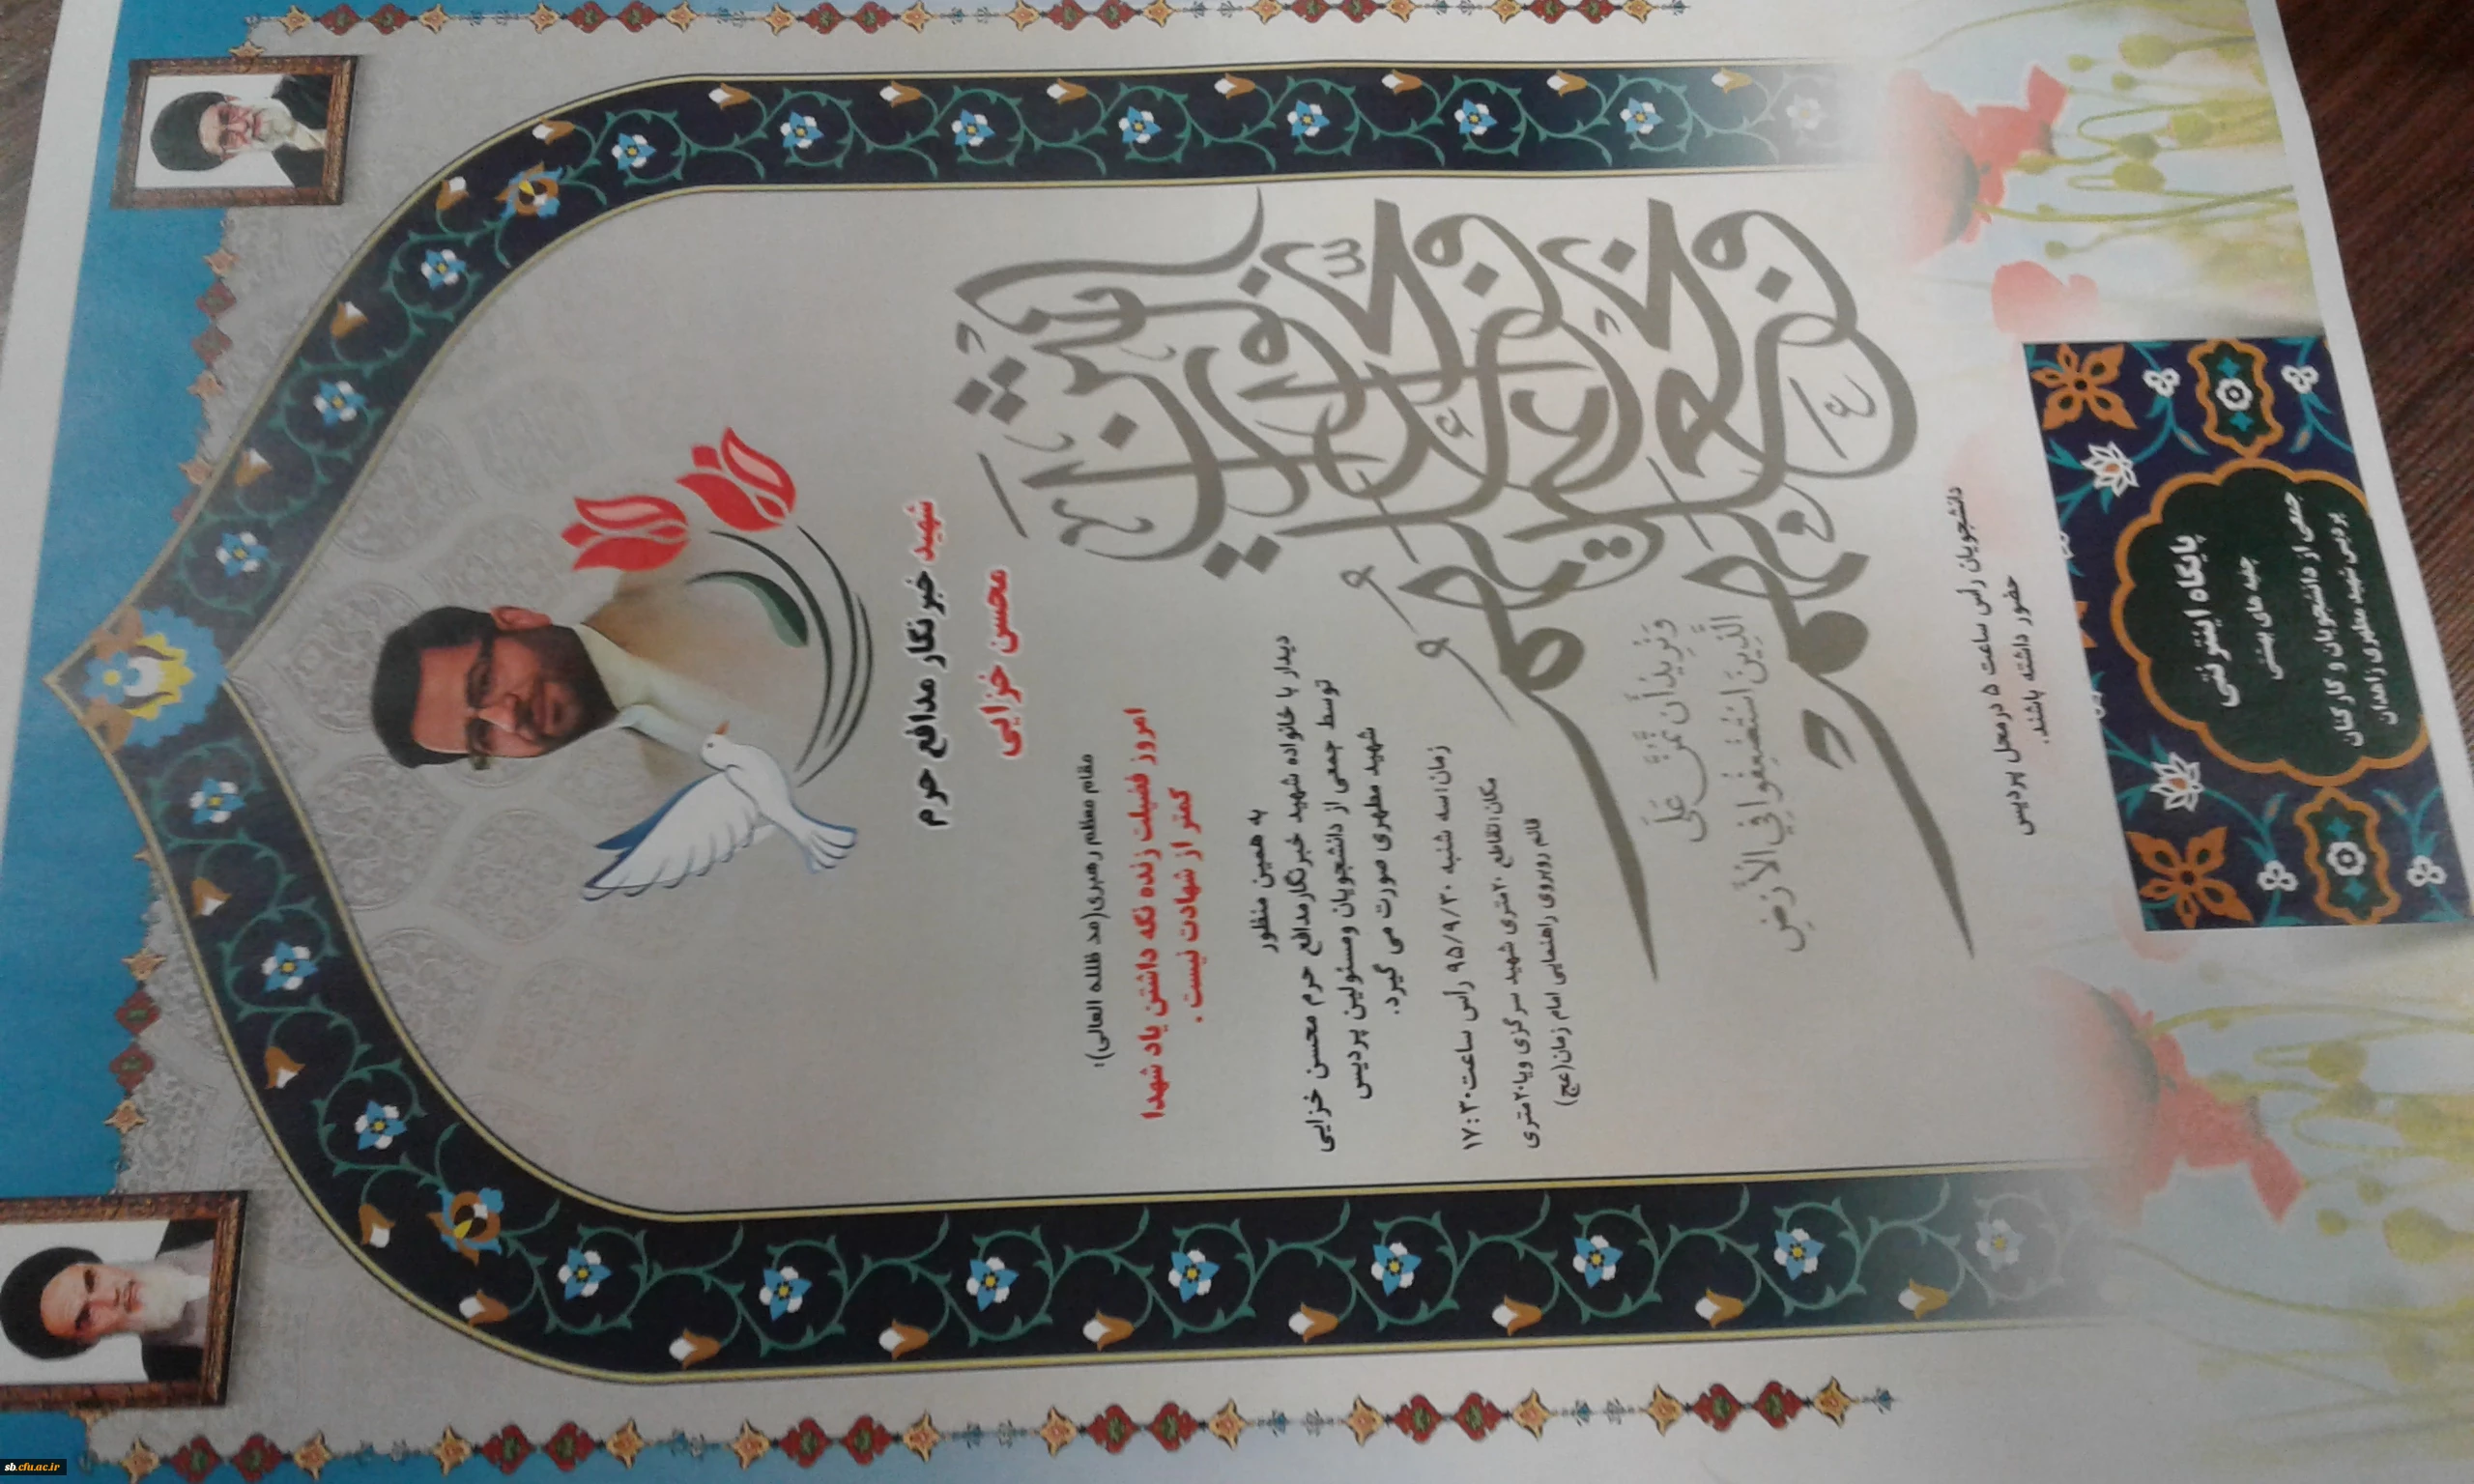 شهید خبرنگار مدافع حرم
محسن خزایی
مقام معظم رهبری(مد ظلله العالی):
امروز فضیلت زنده نگه داشتن یاد شهدا
کمتر از شهادت نیست .
به همین منظور
دیدار با خانواده شهید خبرنگارمدافع حرم محسن خزایی
توسط جمعی از دانشجویان ومسئولین پردیس
شهید مطهری صورت می گیرد.
زمان:سه شنبه ۹۵/۹/۳۰ رأس ساعت۱۷:۳۰
مکان:تقاطع ۲۰متری شهید سرگزی وبا۲۰متری
قائم روبروی راهنمایی امام زمان(عج)
وَنُرِیدُ أَن نَّمُنَّ عَلَی
الَّذِینَ اسْتُضْعِفُوا فِی الْأَرْضِ
دانشجویان رأس ساعت ۵ درمحل پردیس
حضور داشته باشند.
پایگاه اینترنتی
جلبه های بهشتی
جمعی از دانشجویان و کارکنان
پردیس شهید مطهری زاهدان
sb.cfu.ac.ir